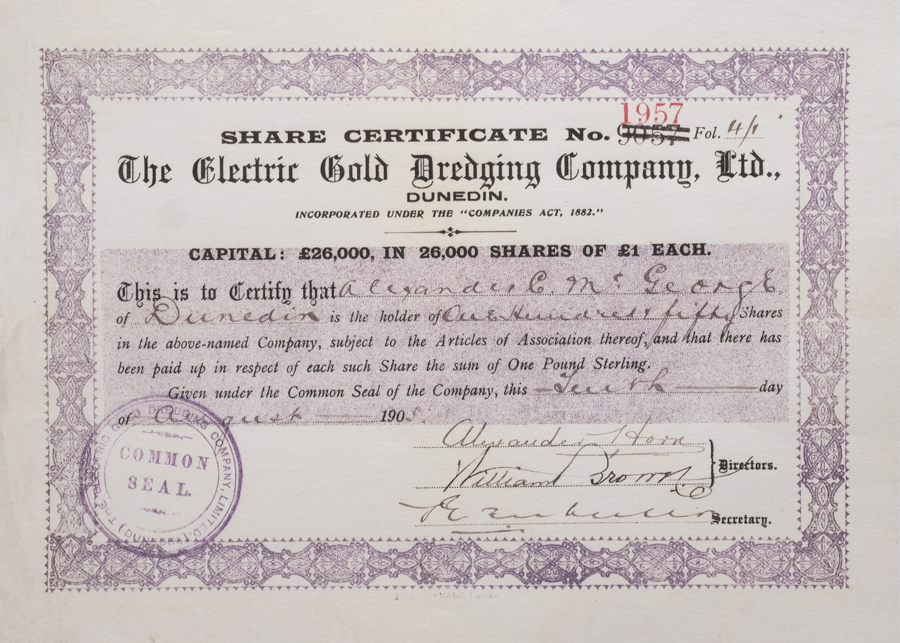 1957
SHARE CERTIFICATE No. 9057 Fol. 4/1
The Electric Gold Dredging Company, Ltd.,
DUNEDIN.
INCORPORATED UNDER THE "COMPANIES ACT, 1882."
CAPITAL: £26,000, IN 26,000 SHARES OF £1 EACH.
This is to Certify that Alexander C. Mc George
of Dunedin is the holder of One Hundred & fifty Shares
in the above-named Company, subject to the Articles of Association thereof, and that there has
been paid up in respect of each such Share the sum of One Pound Sterling.
Given under the Common Seal of the Company, this Tenth day
of August 1905.
Alexander Horn
William Brown
Directors.
Secretary.
COMMON
SEAL.
COMPANY LIMITED. (DUNEDIN)